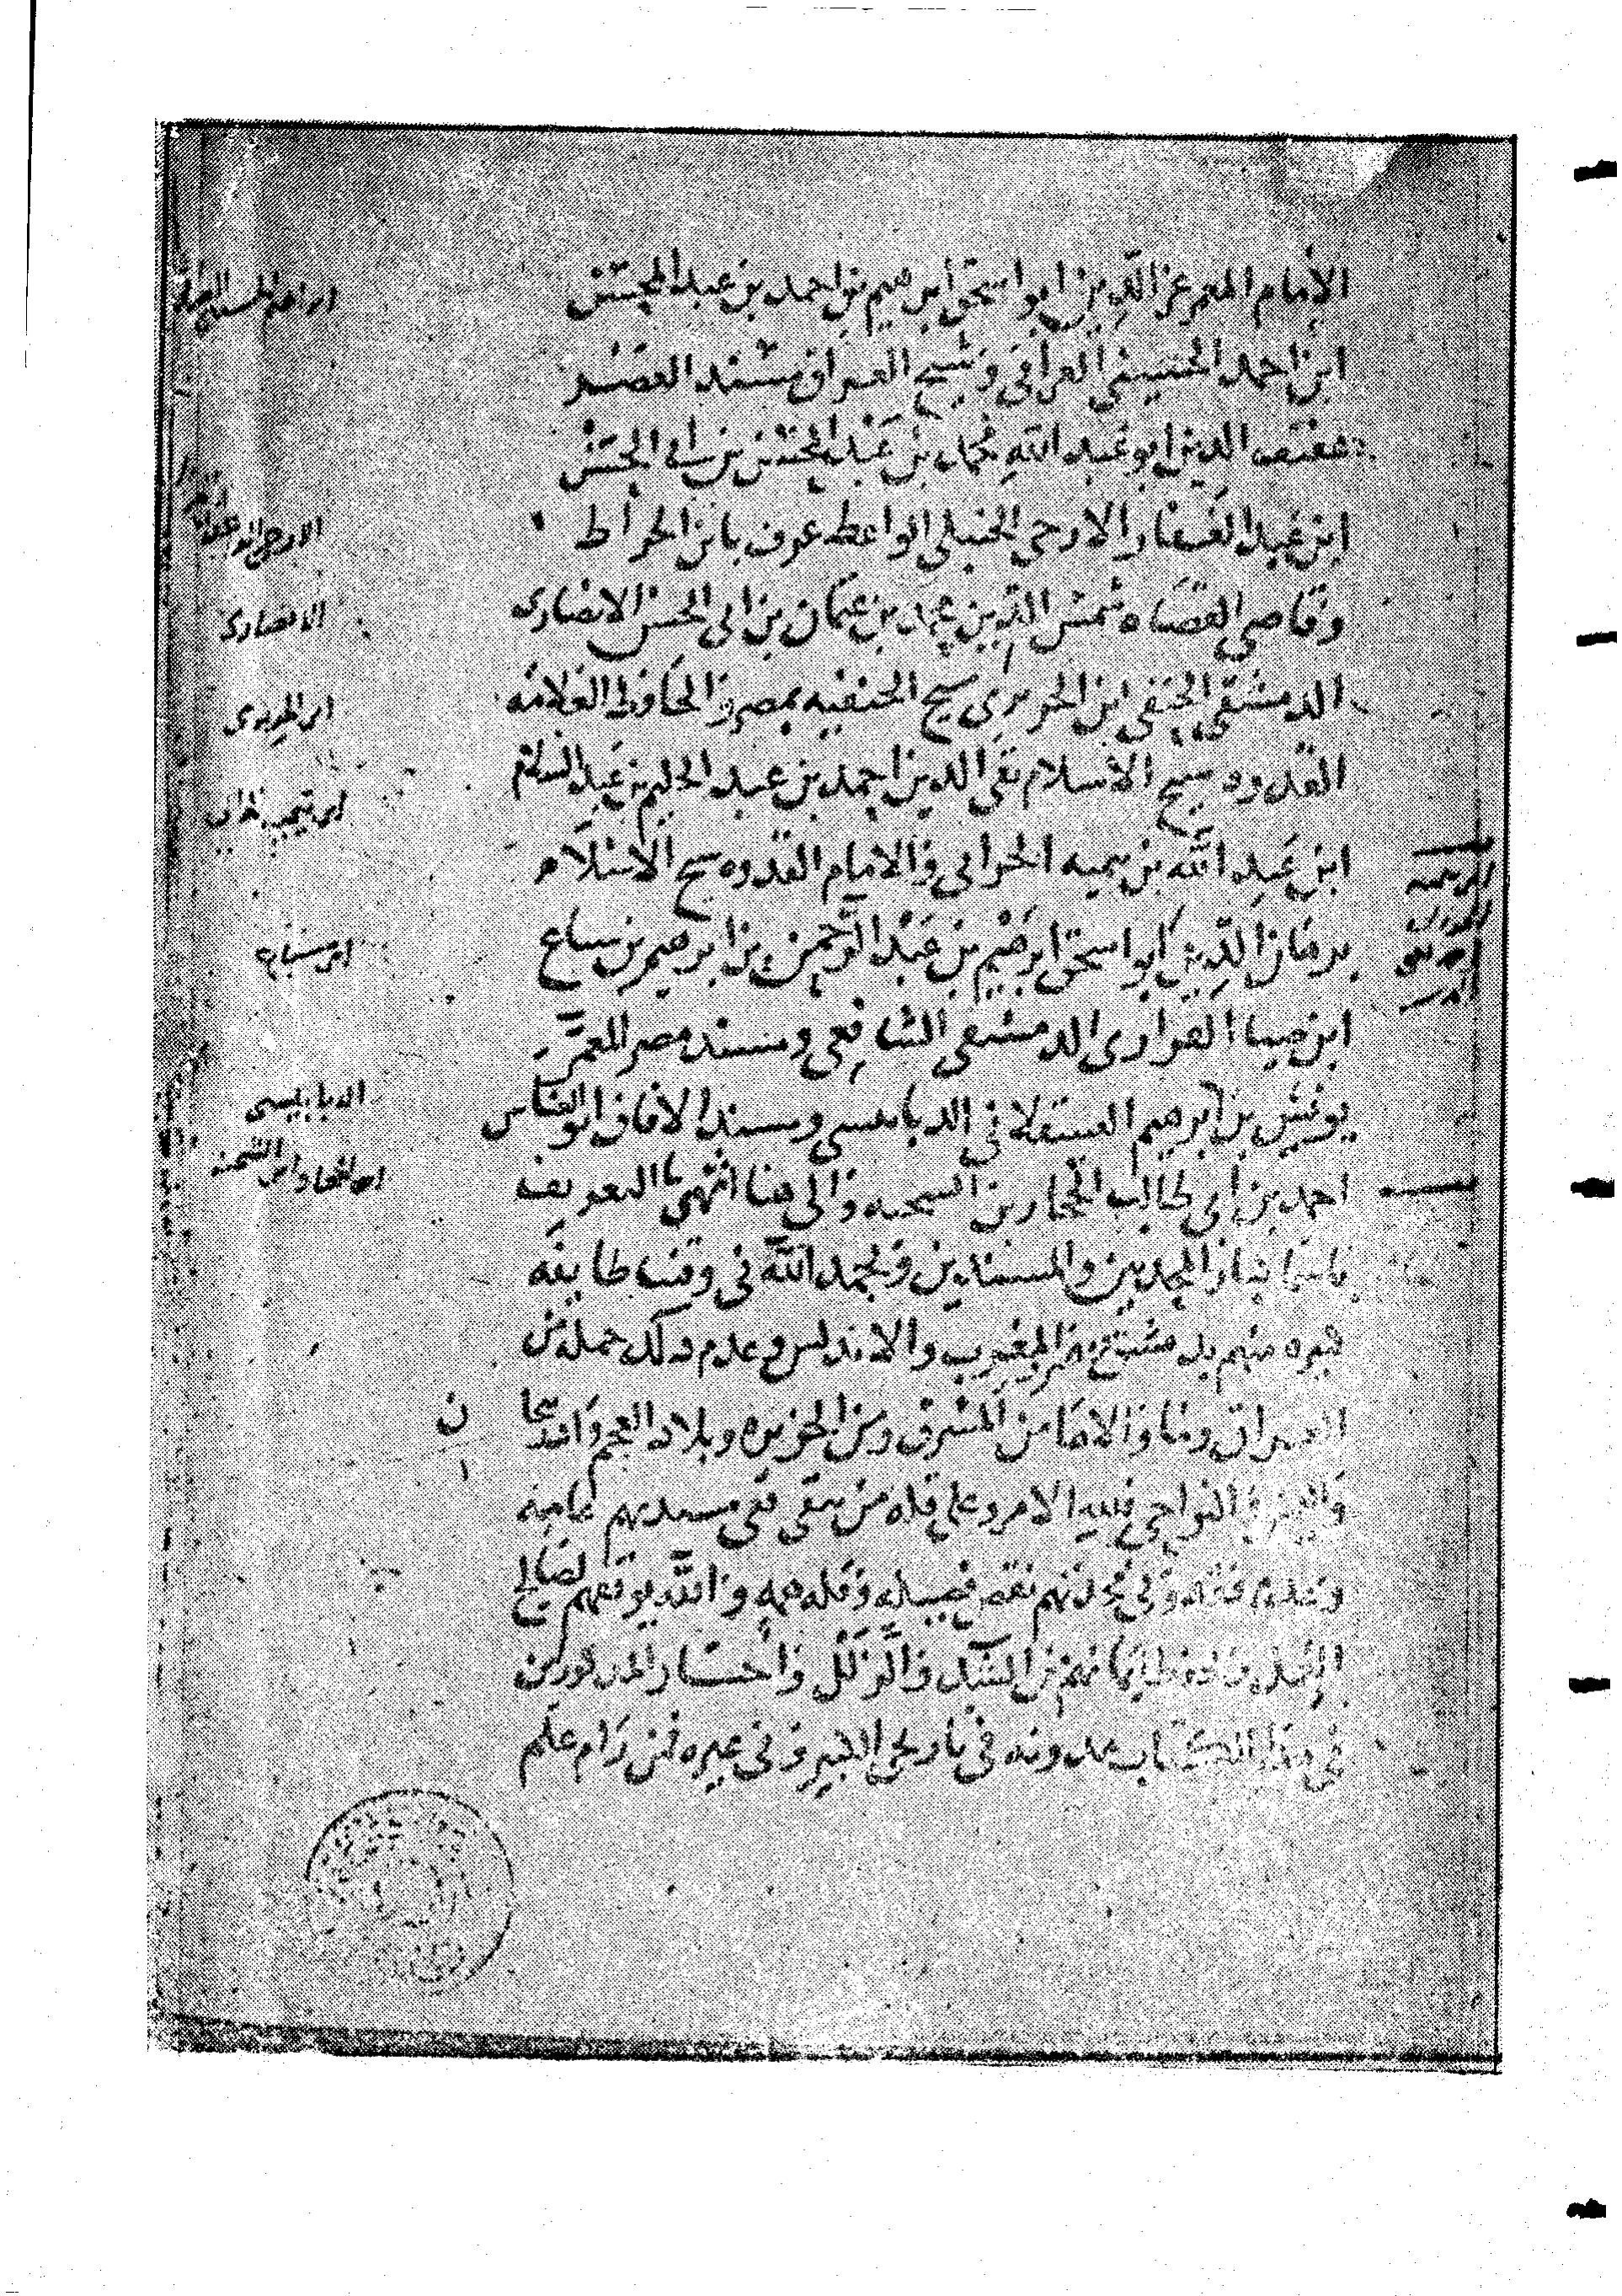 الإمام المعمر عز الدين ابو اسحق ابرهيم بن احمد بن عبد المحسن
ابن احمد الحسيني الغرافي وشيخ العراق مسند العصر
عفيف الدين ابو عبد الله محمد بن عبد المحسن بن ابي الحسن
ابن عبد الغفار الازجي الحنبلي الواعظ عرف بابن الخراط
وقاضي القضاه شمس الدين محمد بن عثمان بن ابي الحسن الانصاري
الدمشقي الحنفي ابن الحريري شيخ الحنفيه بمصر والحافظ العلامه
القدوه شيخ الاسلام تقي الدين احمد بن عبد الحليم بن عبد السلام
ابن عبد الله بن تيميه الحراني والامام القدوه شيخ الاسلام
برهان الدين ابو اسحق ابرهيم بن عبد الرحمن بن ابرهيم بن سباع
ابن ضيا الفزاري الدمشقي الشافعي ومسند مصر المعمر
يونس بن ابرهيم العسقلاني الدبابيسي ومسند الافاق ابو العباس
احمد بن ابي طالب الحجار بن الشحنه والى هنا انتهى التعريف
باسما كبار المحدثين والمسندين وبحمد الله في وقتنا طايفه
كبيره منهم بدمشق ومصر والمغرب والاندلس وعدم ذلك جمله من
العراق وما والاها من المشرق ومن الجزيره وبلاد العجم واذربيجان
النواحي فلله الامر وعلى قله من بقي ففي مسنديهم عاميه
وعدم فقه وفي محدثيهم نقص فضيله وقله همه والله يوفقهم لصالح
العمل ويحفظ ايمانهم من الشك والزلل واخبار المذكورين
في هذا الكتاب مدونه في تاريخي الكبير وفي غيره فمن رام علم
الانصاري
ابن الحريري
ابن تيميه الحراني
ابن سباع
الدبابيسي